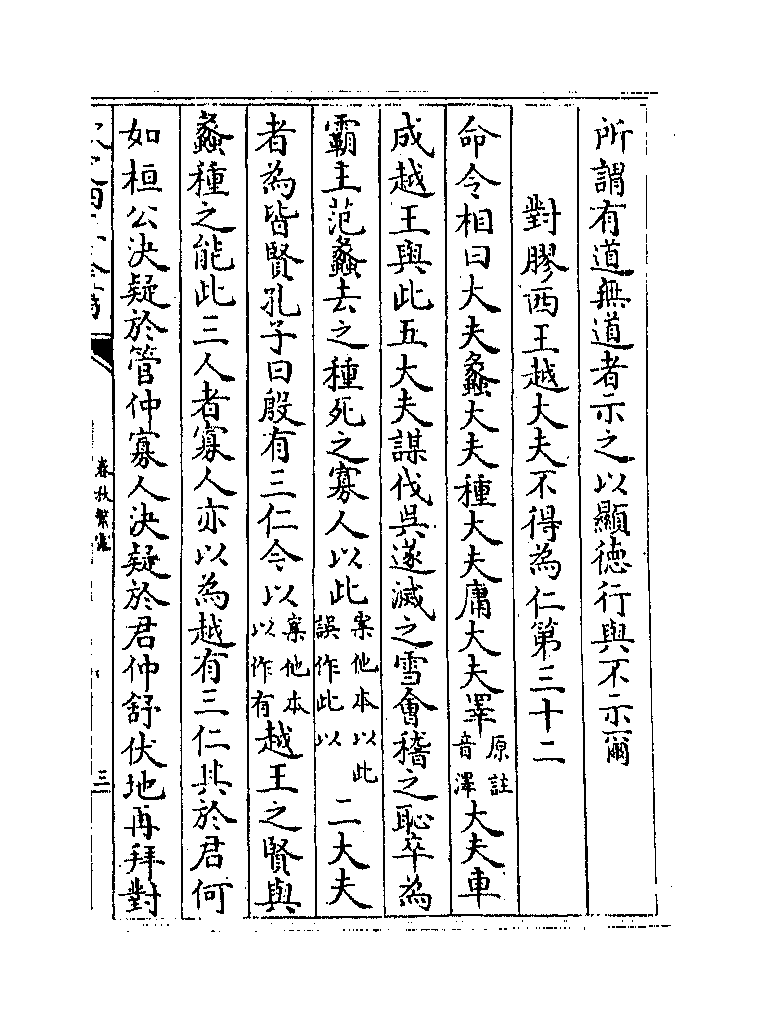 所謂有道無道者示之以顯徳行與不示爾
對膠西王越大夫不得為仁第三十二
命令相曰大夫蠡大夫種大夫庸大夫睪原註音澤大夫車
成越王與此五大夫謀伐吳遂滅之雪會稽之恥卒為
霸主范蠡去之種死之寡人以此案他本以此誤作此以二大夫
者為皆賢孔子曰殷有三仁今以案他本以作有越王之賢與
蠡種之能此三人者寡人亦以為越有三仁其於君何
如桓公決疑於管仲寡人決疑於君仲舒伏地再拜對
春秋繁露
三